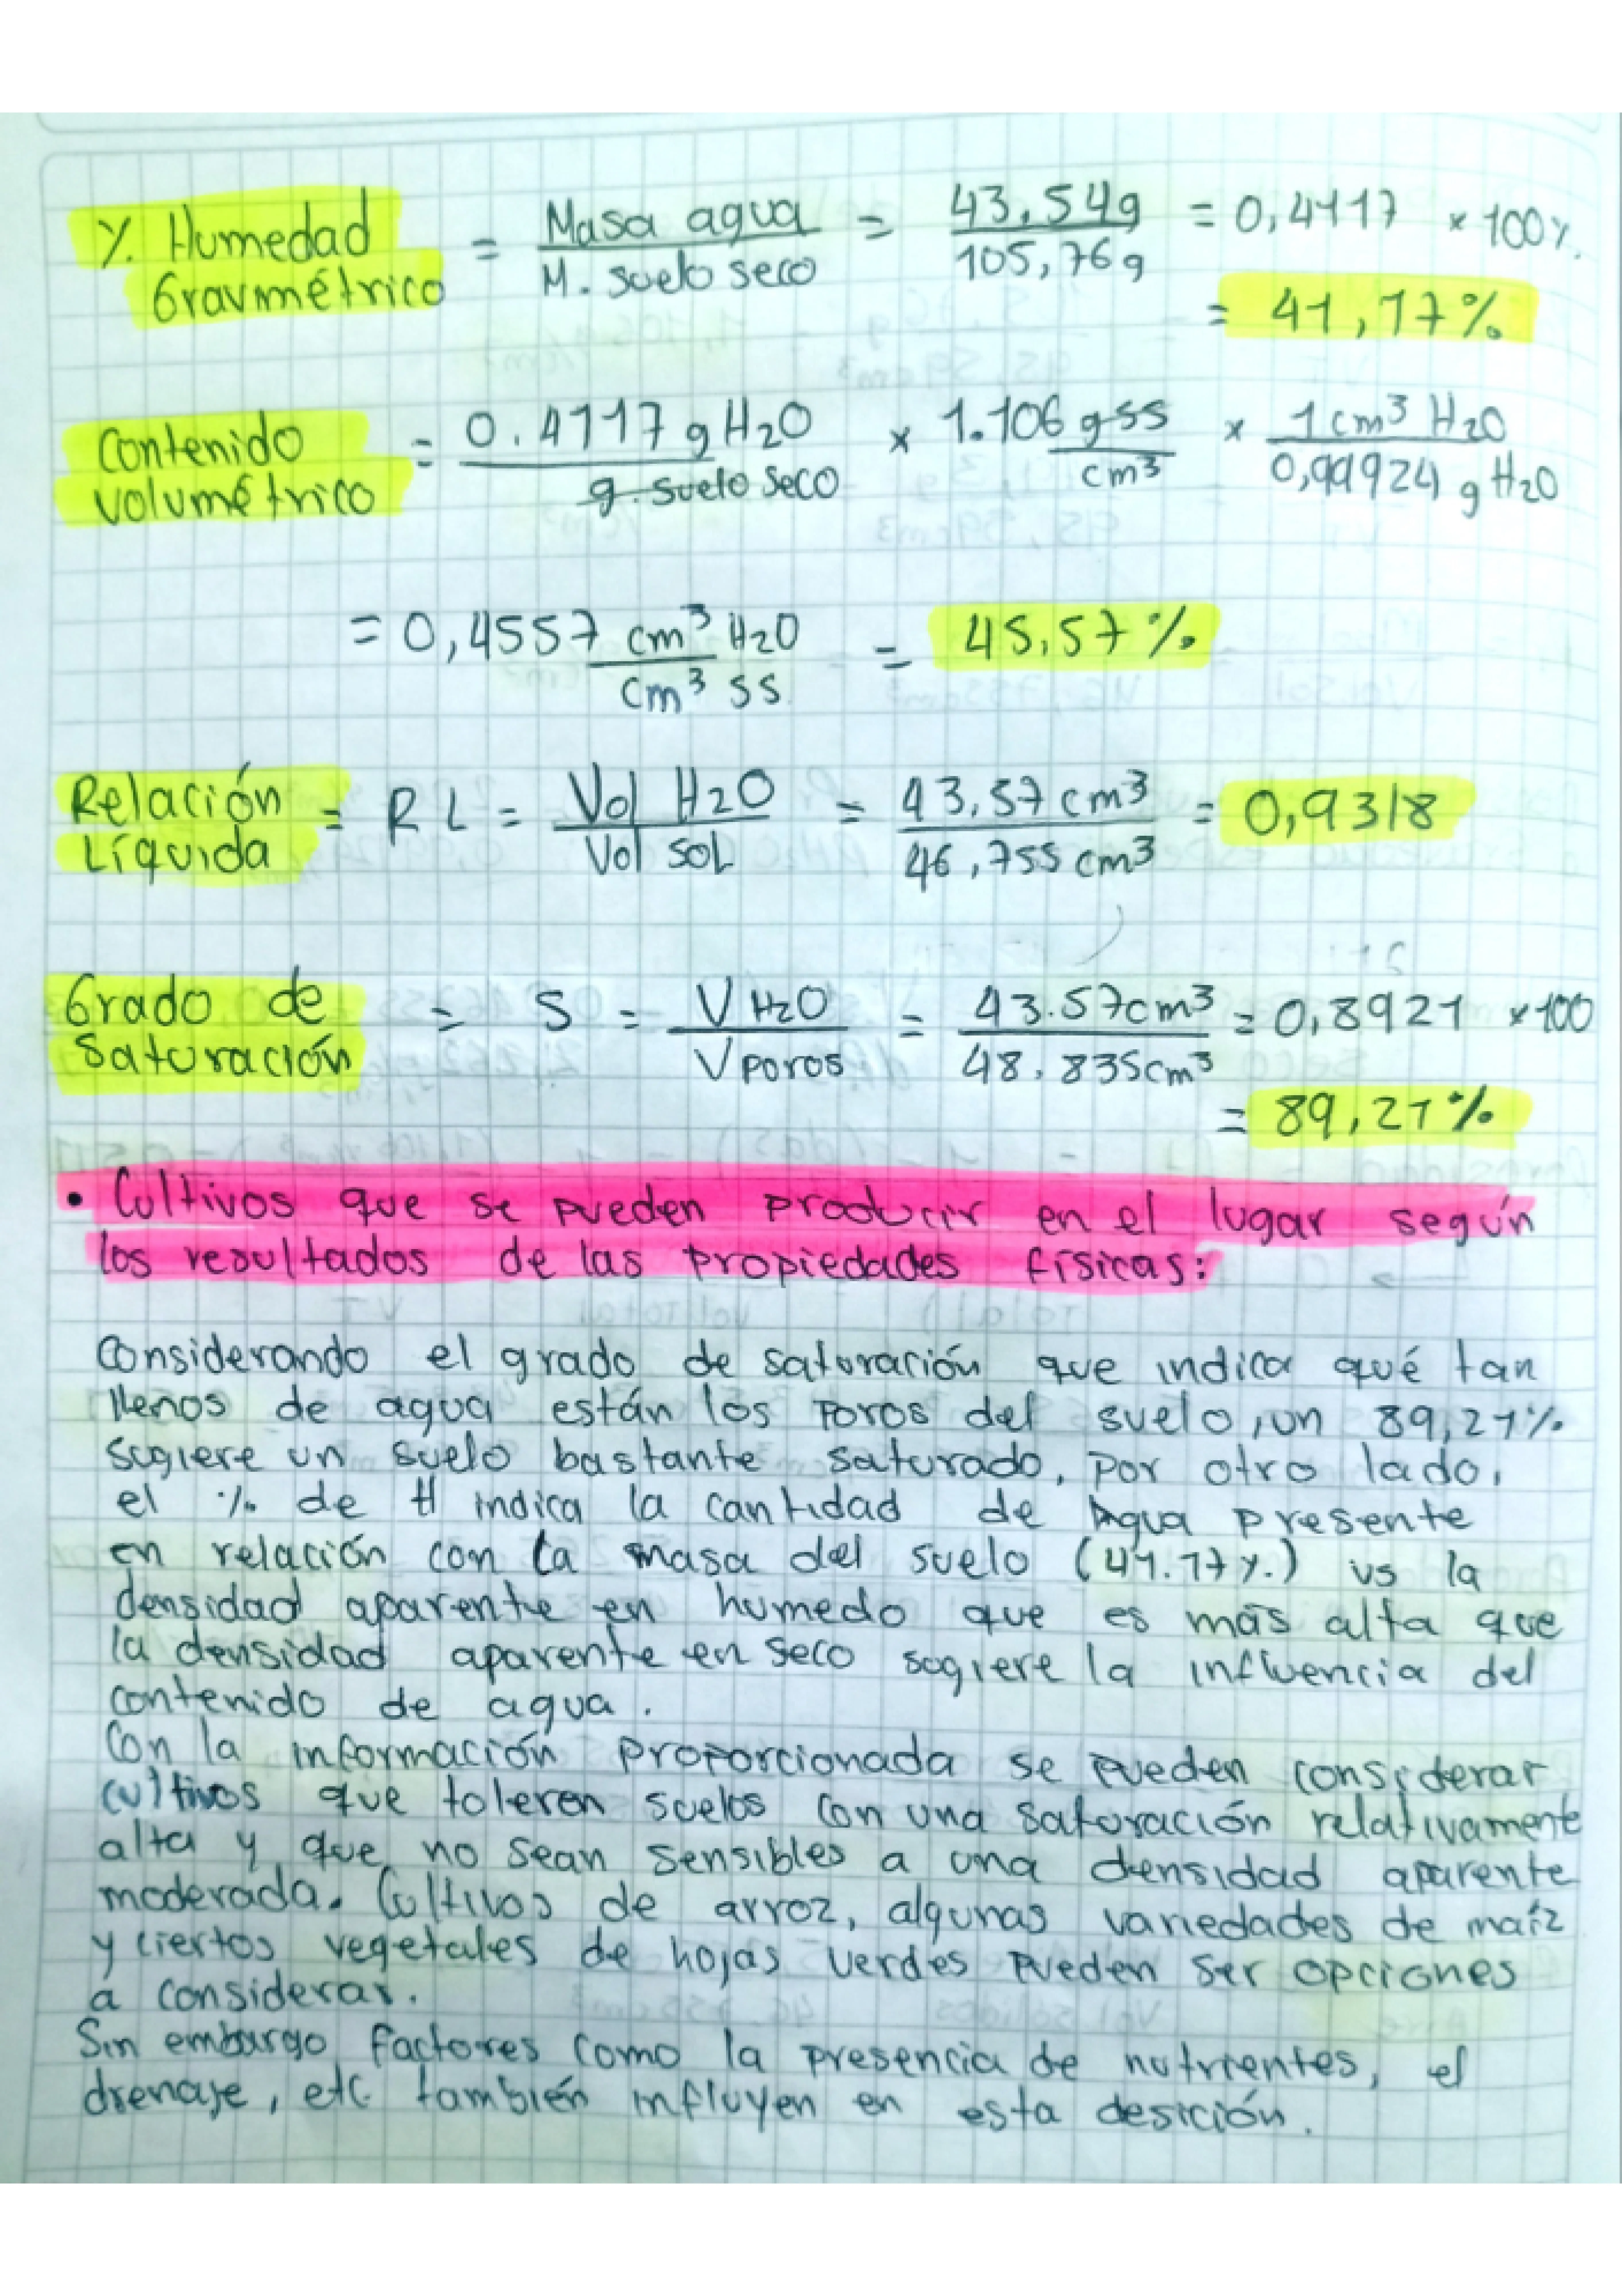 % Humedad Gravmétrico = Masa agua / M. suelo seco = 43,54g / 105,76g = 0,4117 × 100%
= 41,17%
Contenido volumétrico = 0.4117 g H2O / g. suelo seco × 1.106 g ss / cm³ × 1 cm³ H2O / 0,99924 g H2O
= 0,4557 cm³ H2O / cm³ ss = 45,57%
Relación Líquida = RL = Vol H2O / Vol sol = 43,57 cm³ / 46,755 cm³ = 0,9318
Grado de Saturación = S = V H2O / V poros = 43.57cm³ / 48.835cm³ = 0,8921 × 100
= 89,21%
• Cultivos que se pueden producir en el lugar según
los resultados de las propiedades físicas:
Considerando el grado de saturación que indica qué tan
llenos de agua están los poros del suelo, un 89,21%
sugiere un suelo bastante saturado, por otro lado,
el % de H indica la cantidad de Agua presente
en relación con la masa del suelo (41.17%) vs la
densidad aparente en humedo que es más alta que
la densidad aparente en seco sugiere la influencia del
contenido de agua.
Con la información proporcionada se pueden considerar
cultivos que toleren suelos con una saturación relativamente
alta y que no sean sensibles a una densidad aparente
moderada. Cultivos de arroz, algunas variedades de maíz
y ciertos vegetales de hojas verdes pueden ser opciones
a considerar.
Sin embargo factores como la presencia de nutrientes, el
drenaje, etc también influyen en esta desición.